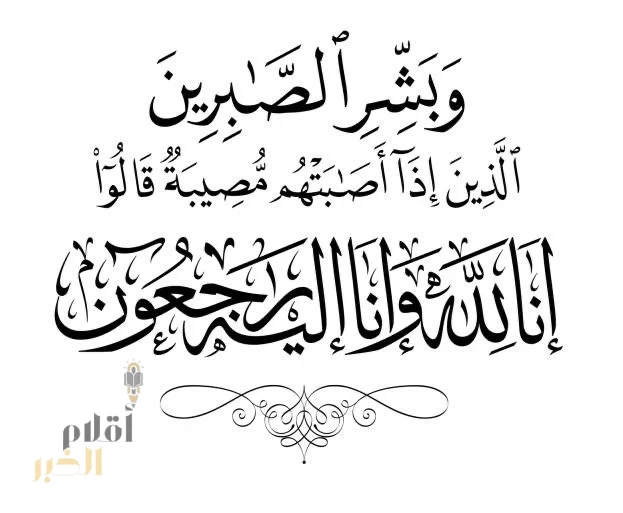 وَبَشِّرِ ٱلصَّـٰبِرِينَ
ٱلَّذِينَ إِذَآ أَصَـٰبَتْهُم مُّصِيبَةٌ قَالُوٓا۟
إنا لله وإنا إليه راجعون
أقلام
الخبر